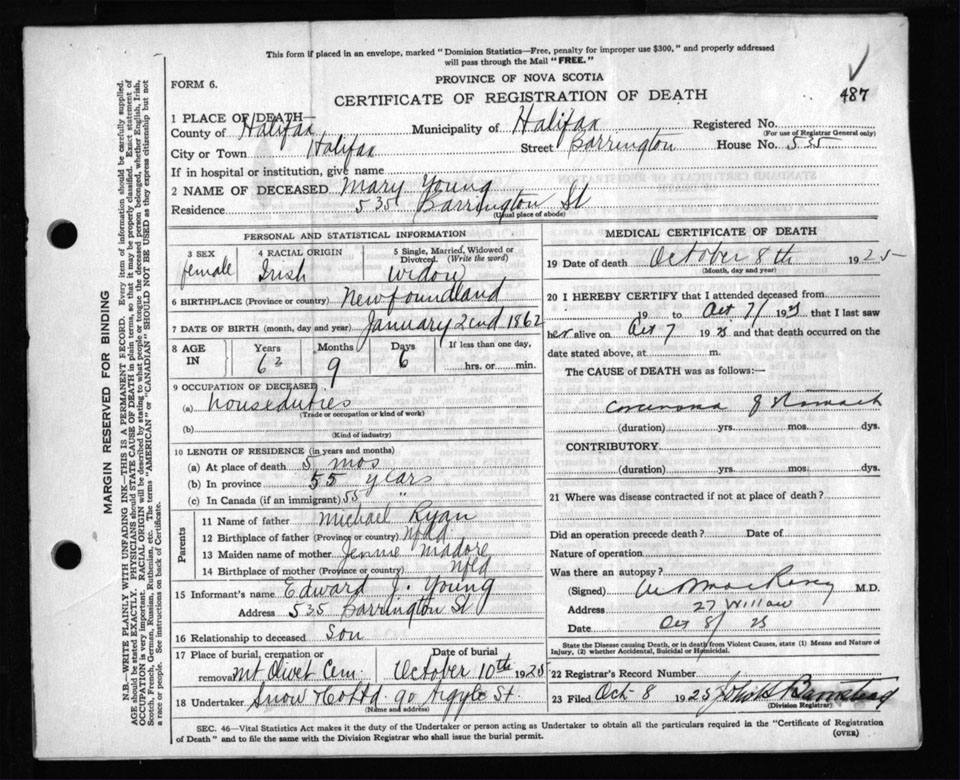 This form if placed in an envelope, marked "Dominion Statistics—Free, penalty for improper use $300," and properly addressed
will pass through the Mail "FREE."
FORM 6.
PROVINCE OF NOVA SCOTIA
CERTIFICATE OF REGISTRATION OF DEATH
487
1 PLACE OF DEATH—
County of Halifax Municipality of Halifax Registered No.
(For use of Registrar General only)
City or Town Halifax Street Barrington House No. 535
If in hospital or institution, give name
2 NAME OF DECEASED Mary Young
Residence 535 Barrington St
(Usual place of abode)
PERSONAL AND STATISTICAL INFORMATION
3 SEX 4 RACIAL ORIGIN 5 Single, Married, Widowed or Divorced. (Write the word)
female Irish widow
6 BIRTHPLACE (Province or country) Newfoundland
7 DATE OF BIRTH (month, day and year) January 22nd 1862
8 AGE IN Years Months Days If less than one day,
63 9 6 hrs. or min.
9 OCCUPATION OF DECEASED
(a) houseduties
(Trade or occupation or kind of work)
(b)
(Kind of industry)
10 LENGTH OF RESIDENCE (in years and months)
(a) At place of death 5 mos
(b) In province 55 years
(c) In Canada (if an immigrant) 55 "
Parents
11 Name of father Michael Ryan
12 Birthplace of father (Province or country) Nfld
13 Maiden name of mother Jennie Madore
14 Birthplace of mother (Province or country) Nfld
15 Informant's name Edward J. Young
Address 535 Barrington St
16 Relationship to deceased Son
17 Place of burial, cremation or removal Date of burial
Mt Olivet Cem. October 10th 1925
18 Undertaker Snow & Co Ltd 90 Argyle St.
(Name and address)
MEDICAL CERTIFICATE OF DEATH
19 Date of death October 8th 1925
(Month, day and year)
20 I HEREBY CERTIFY that I attended deceased from
19 to Oct 7/ 1925 that I last saw
her alive on Oct 7 1925 and that death occurred on the
date stated above, at m.
The CAUSE of DEATH was as follows:—
Carcinoma of stomach
(duration) yrs. mos. dys.
CONTRIBUTORY
(duration) yrs. mos. dys.
21 Where was disease contracted if not at place of death?
Did an operation precede death? Date of
Nature of operation
Was there an autopsy?
(Signed) M.D.
Address 27 Willow
Date Oct 8/ 25
State the Disease causing Death, or in death from Violent Causes, state (1) Means and Nature of
Injury, (2) whether Accidental, Suicidal or Homicidal.
22 Registrar's Record Number
23 Filed Oct 8 1925 Barnstead
(Division Registrar)
SEC. 46—Vital Statistics Act makes it the duty of the Undertaker or person acting as Undertaker to obtain all the particulars required in the "Certificate of Registration
of Death" and to file the same with the Division Registrar who shall issue the burial permit.
(OVER)
MARGIN RESERVED FOR BINDING
N.B.—WRITE PLAINLY WITH UNFADING INK—THIS IS A PERMANENT RECORD. Every item of information should be carefully supplied.
AGE should be stated EXACTLY. PHYSICIANS should STATE CAUSE OF DEATH in plain terms, so that it may be properly classified. Exact statement of
OCCUPATION is very important. RACIAL ORIGIN will be described by stating to what people or tongue the deceased person belonged, whether English, Irish,
Scotch, French, German, Russian, Ruthenian, etc. The terms "AMERICAN" or "CANADIAN" SHOULD NOT BE USED as they express citizenship but not
a race or people. See instructions on back of Certificate.